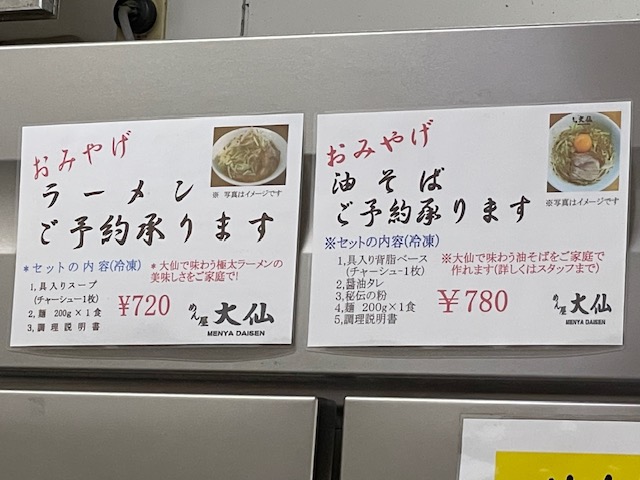 おみやげ
ラーメン
ご予約承ります
※ 写真はイメージです
*セットの内容(冷凍)
1,具入りスープ
(チャーシュー1枚)
2,麺 200g×1食
3,調理説明書
*大仙で味わう極太ラーメンの
美味しさをご家庭で!
¥720
めん屋 大仙
MENYA DAISEN
おみやげ
油そば
ご予約承ります
※写真はイメージです
※セットの内容(冷凍)
1,具入り背脂ベース
(チャーシュー1枚)
2,醤油タレ
3,秘伝の粉
4,麺 200g×1食
5,調理説明書
※大仙で味わう油そばをご家庭で
作れます(詳しくはスタッフまで)
¥780
めん屋 大仙
MENYA DAISEN